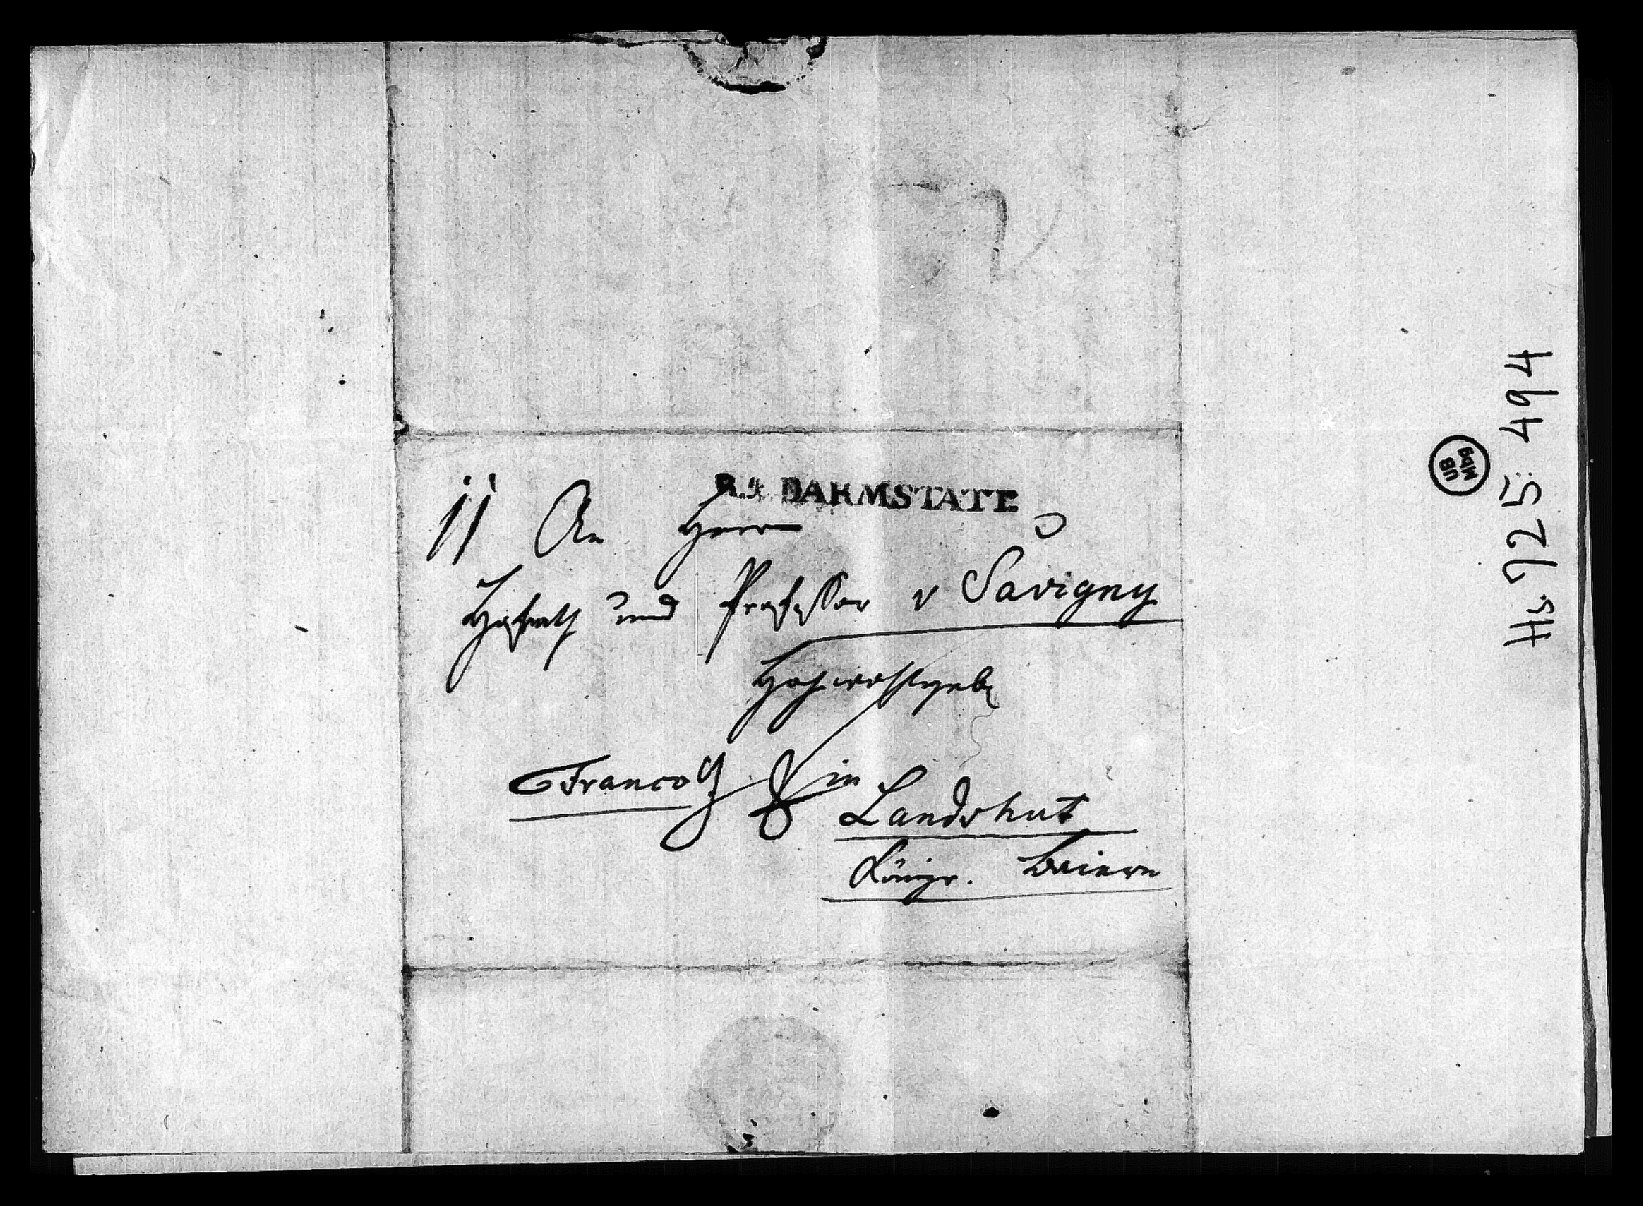 R.4 DARMSTATT
An Herrn
Hofrath und Professor v Savigny
Hochwohlgeb
Franco
in
Landshut
Königr. Baiern
Hs. 725: 494
UB
Marb